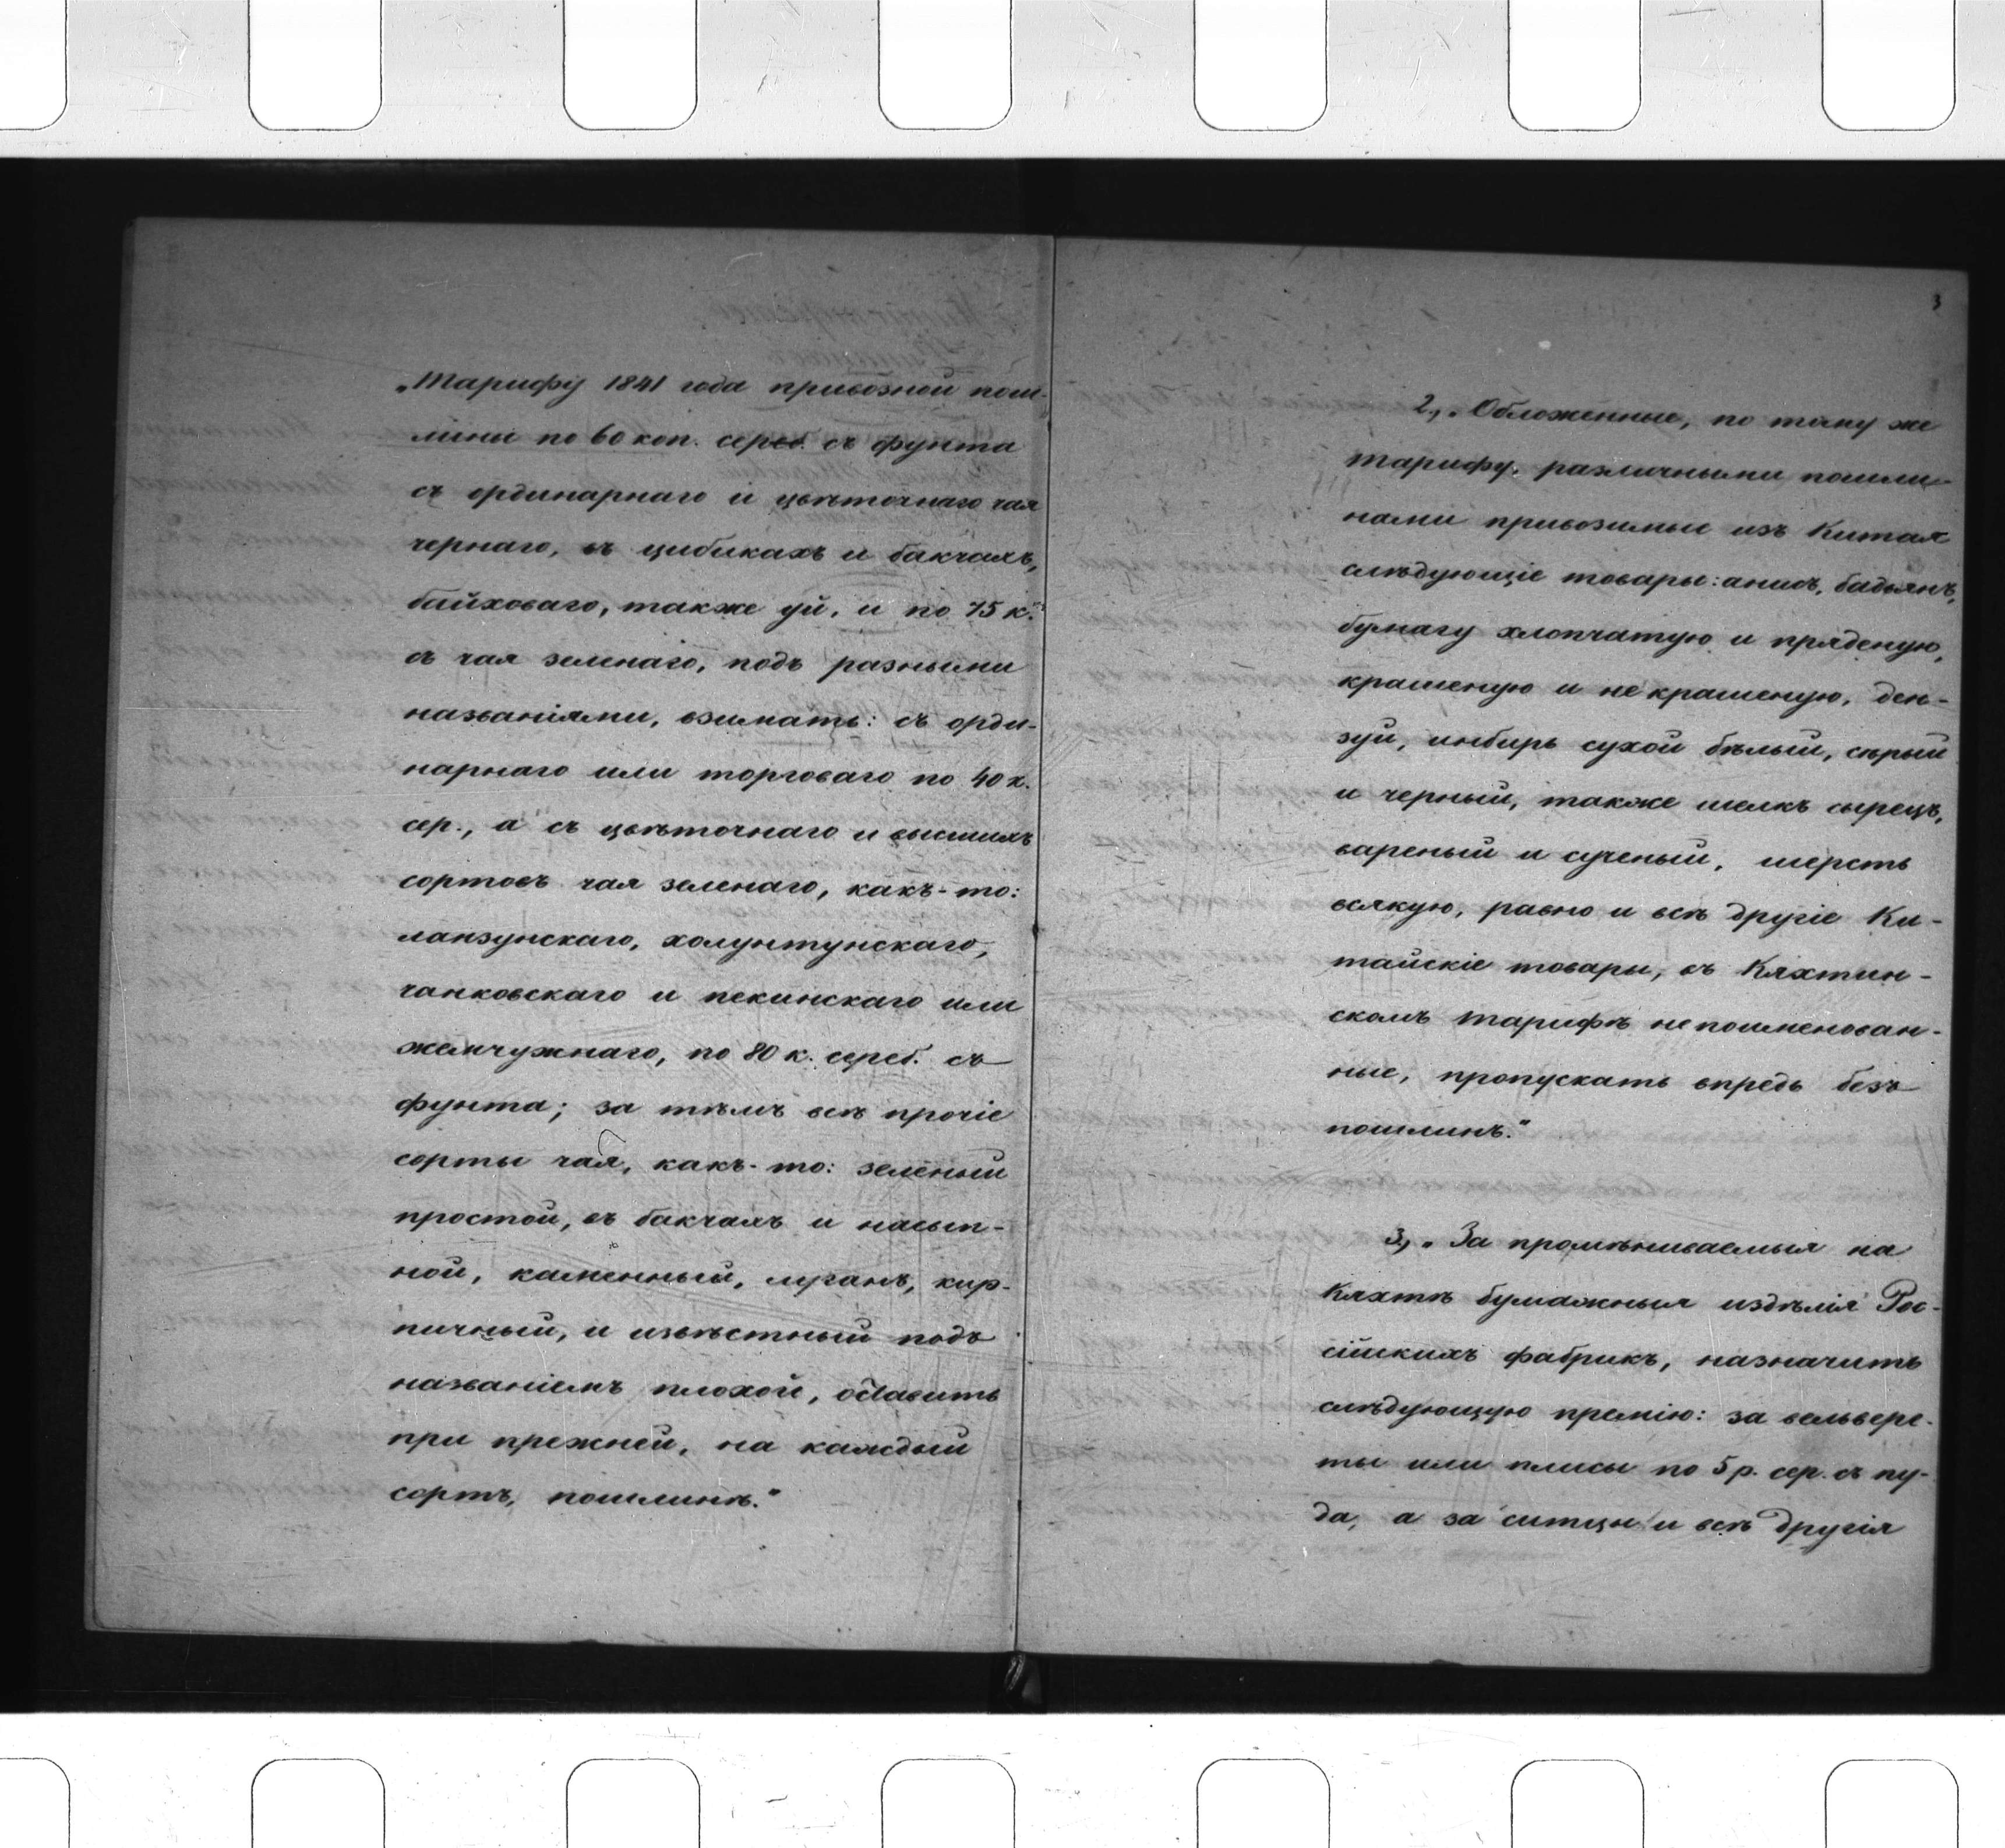 „Тарифу 1841 года привозной пош-
лины по 60 коп. сереб. съ фунта
съ ординарнаго и цвѣточнаго чая
чернаго, въ цибикахъ и бакчахъ,
байховаго, также уй, и по 75 к.
съ чая зеленаго, подъ разными
названіями, взимать: съ орди-
нарнаго или торговаго по 40 к.
сер., а съ цвѣточнаго и высшихъ
сортовъ чая зеленаго, какъ-то:
ланзунскаго, холунтунскаго,
чанковскаго и пекинскаго или
жемчужнаго, по 80 к. сереб. съ
фунта; за тѣмъ всѣ прочіе
сорты чая, какъ-то: зеленый
простой, въ бакчахъ и насып-
ной, каменный, луганъ, кир-
пичный, и извѣстный подъ
названіемъ плохой, оставить
при прежней, на каждый
сортъ, пошлинѣ.“
3
2., „Обложенные, по тому же
тарифу, различными пошли-
нами привозимые изъ Китая
слѣдующіе товары: анисъ, бадьянъ,
бумагу хлопчатую и пряденую,
крашеную и не крашеную, ден-
зуй, инбирь сухой бѣлый, сѣрый
и черный, также шелкъ сырецъ,
вареный и сученый, шерсть
всякую, равно и всѣ другіе Ки-
тайскіе товары, въ Кяхтин-
скомъ тарифѣ не поименован-
ные, пропускать впредь безъ
пошлинъ.“
3., „За промѣниваемыя на
Кяхтѣ бумажныя издѣлія Рос-
сійскихъ фабрикъ, назначить
слѣдующую премію: за вельвере-
ты или плисы по 5 р. сер. съ пу-
да, а за ситцы и всѣ другія